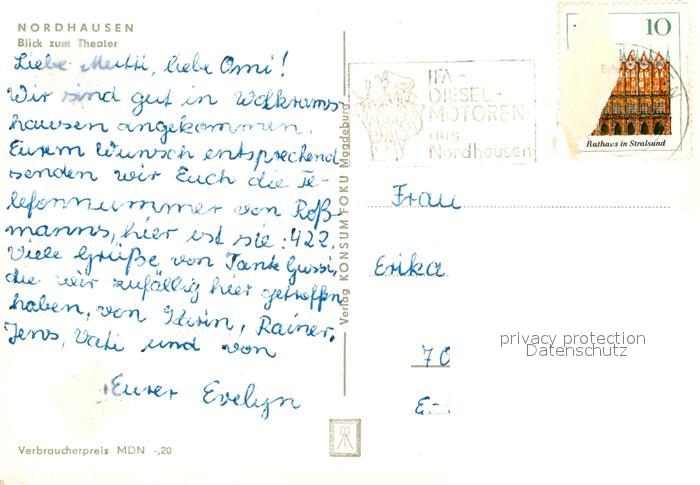 NORDHAUSEN
Blick zum Theater
Liebe Mutti, liebe Omi!
Wir sind gut in Wolkrams-
hausen angekommen.
Eurem Wunsch entsprechend
senden wir Euch die Te-
lefonnummer von Roß-
manns, hier ist sie: 422.
Viele Grüße von Tante Gussi,
die wir zufällig hier getroffen
haben, von Karin, Rainer,
Jens, Vati und von
Eurer Evelyn
Verbraucherpreis MDN -,20
Verlag KONSUM FOKU Magdeburg
IFA-
DIESEL-
MOTOREN
aus
Nordhausen
10
Rathaus in Stralsund
Frau
Erika
70
E
privacy protection
Datenschutz